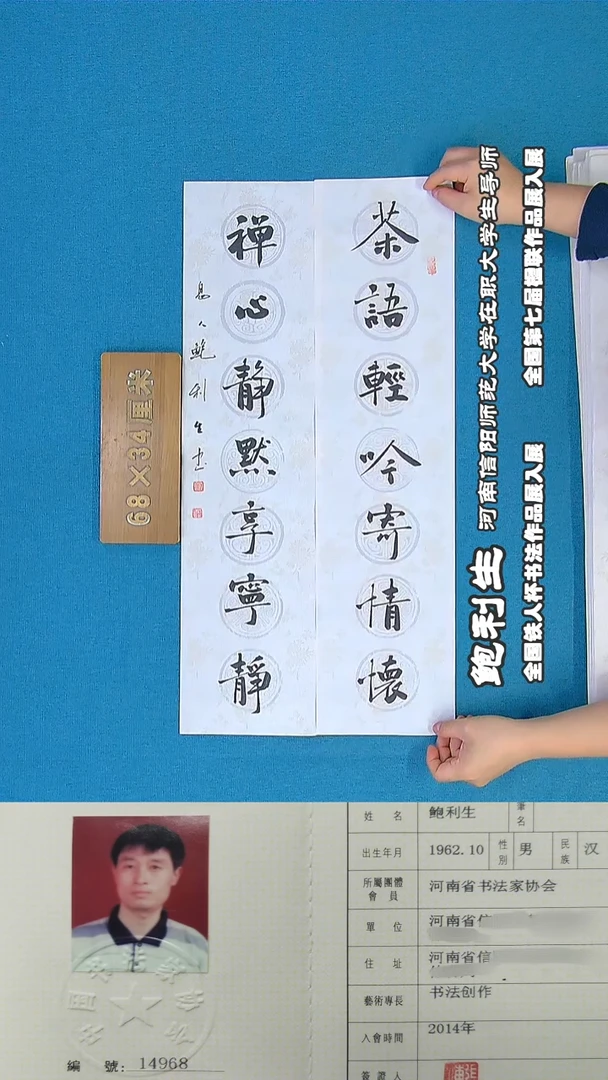 茶語輕吟寄情懷
禪心靜默享寧靜
息人鮑利生书
68×34厘米
鲍利生 河南信阳师范大学在职大学生导师
全国铁人杯书法作品展入展 全国第七届楹联作品展入展
姓名 鲍利生 筆名
出生年月 1962.10 性別 男 民族 汉
所屬團體會員 河南省书法家协会
單位 河南省信
住址 河南省信
藝術專長 书法创作
入會時間 2014年
簽證人
編號: 14968